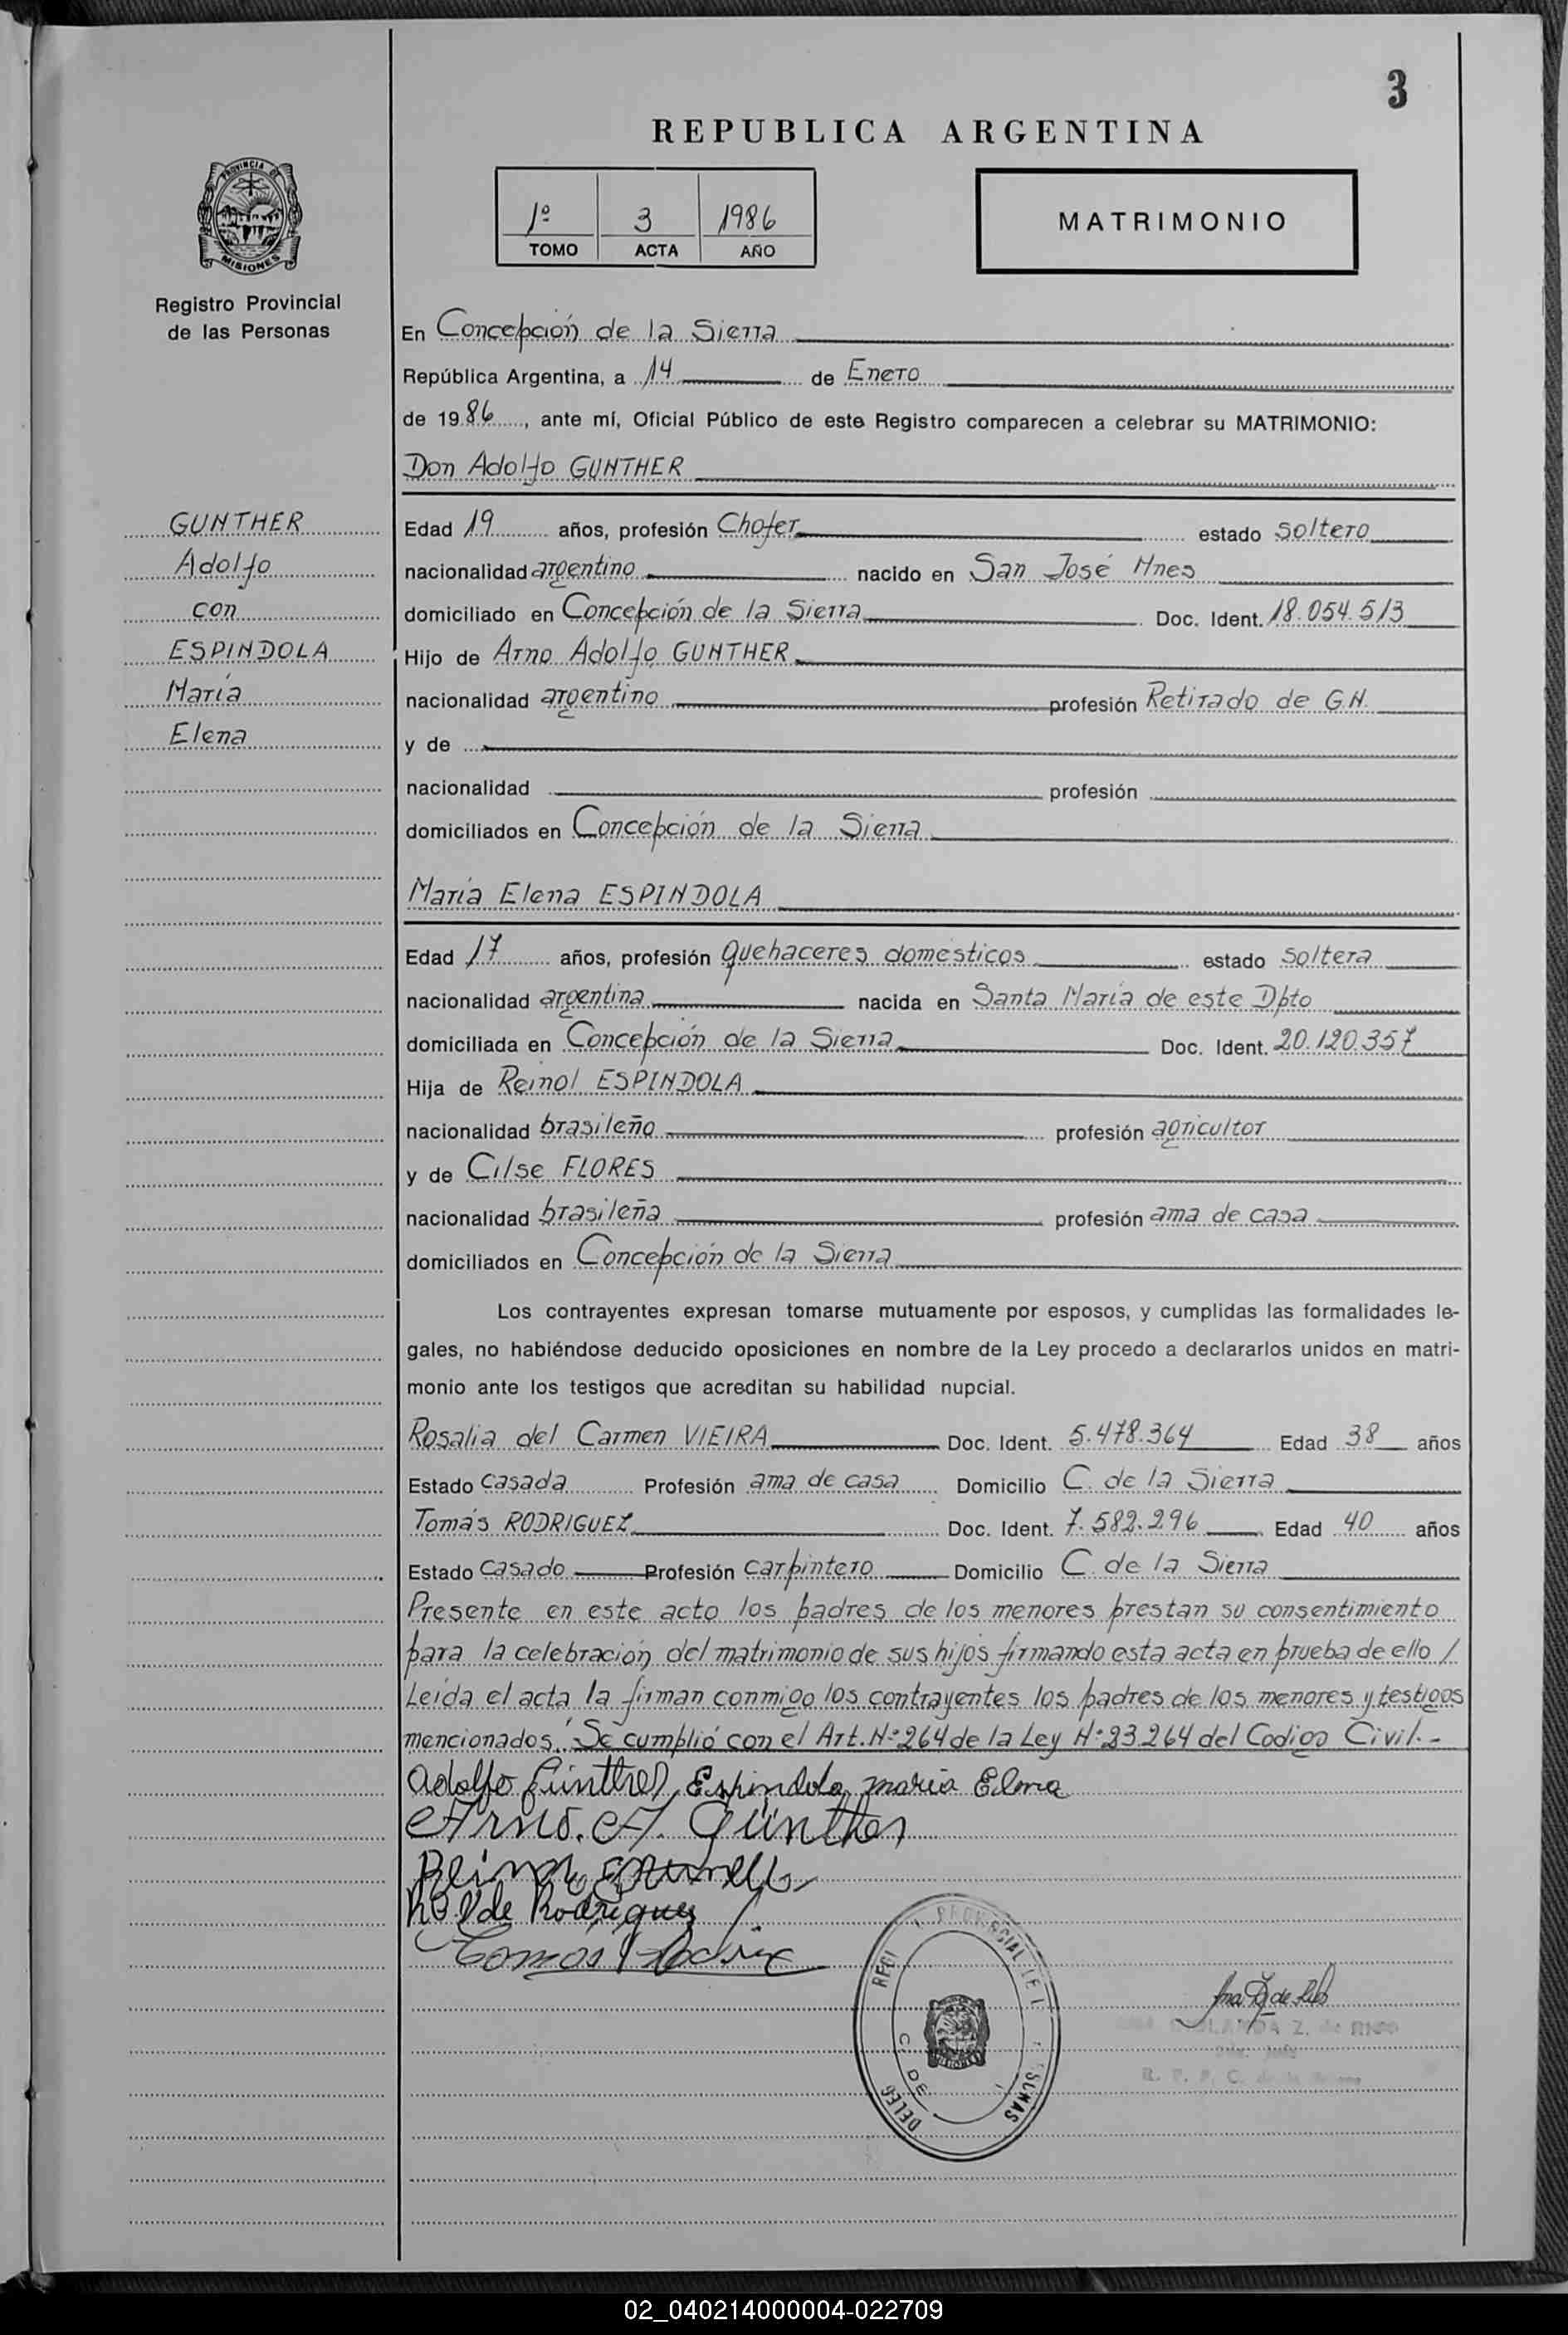 3
REPUBLICA ARGENTINA
PROVINCIA DE
MISIONES
1º 3 1986
TOMO ACTA AÑO
MATRIMONIO
Registro Provincial
de las Personas
En Concepción de la Sierra
República Argentina, a 14 de Enero
de 1986, ante mí, Oficial Público de este Registro comparecen a celebrar su MATRIMONIO:
Don Adolfo GUNTHER
GUNTHER
Adolfo
con
ESPINDOLA
María
Elena
Edad 19 años, profesión Chofer estado soltero
nacionalidad argentino nacido en San José Mnes
domiciliado en Concepción de la Sierra Doc. Ident. 18.054.513
Hijo de Arno Adolfo GUNTHER
nacionalidad argentino profesión Retirado de G.N.
y de
nacionalidad profesión
domiciliados en Concepción de la Sierra
María Elena ESPINDOLA
Edad 17 años, profesión quehaceres domesticos estado soltera
nacionalidad argentina nacida en Santa María de este Dpto
domiciliada en Concepción de la Sierra Doc. Ident. 20.120.357
Hija de Reinol ESPINDOLA
nacionalidad brasileño profesión agricultor
y de Cilse FLORES
nacionalidad brasileña profesión ama de casa
domiciliados en Concepción de la Sierra
Los contrayentes expresan tomarse mutuamente por esposos, y cumplidas las formalidades le-
gales, no habiéndose deducido oposiciones en nombre de la Ley procedo a declararlos unidos en matri-
monio ante los testigos que acreditan su habilidad nupcial.
Rosalia del Carmen VIEIRA Doc. Ident. 5.478.364 Edad 38 años
Estado casada Profesión ama de casa Domicilio C. de la Sierra
Tomás RODRIGUEZ Doc. Ident. 7.582.296 Edad 40 años
Estado casado Profesión carpintero Domicilio C. de la Sierra
Presente en este acto los padres de los menores prestan su consentimiento
para la celebración del matrimonio de sus hijos firmando esta acta en prueba de ello /
Leída el acta la firman conmigo los contrayentes los padres de los menores y testigos
mencionados. Se cumplió con el Art. Nº 264 de la Ley Nº 23.264 del Codigo Civil.-
Adolfo Günther Espindola maria Elena
Arno. A. Günther
de Rodriguez
Tomás
PROVINCIAL DE
C. DE
DELEG
MISIONES
Z. de
02_040214000004-022709